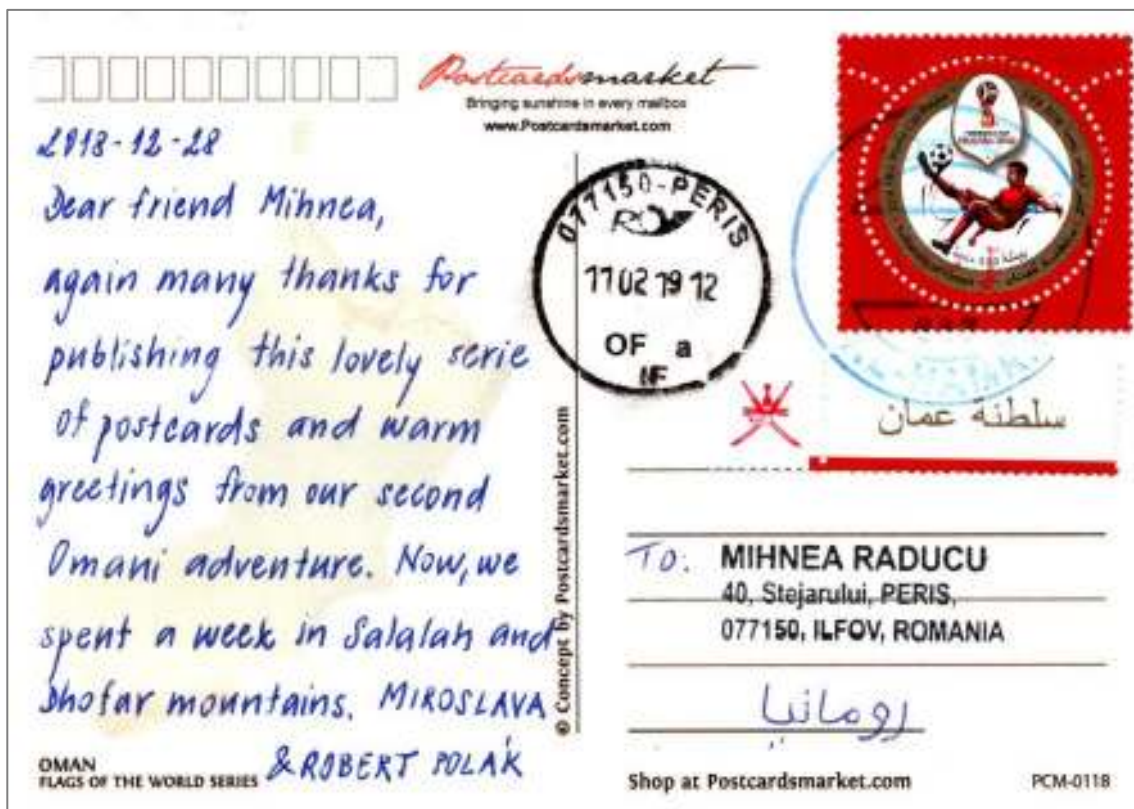 Postcardsmarket
Bringing sunshine in every mailbox
www.Postcardsmarket.com
2018-12-28
Dear friend Mihnea,
again many thanks for
publishing this lovely serie
of postcards and warm
greetings from our second
Omani adventure. Now, we
spent a week in Salalah and
Dhofar mountains. MIROSLAVA
& ROBERT POLÁK
OMAN
FLAGS OF THE WORLD SERIES
© Concept by Postcardsmarket.com
077150-PERIS
11 02 19 12
OF a
IF
سلطنة عمان
TO: MIHNEA RADUCU
40, Stejarului, PERIS,
077150, ILFOV, ROMANIA
رومانيا
Shop at Postcardsmarket.com
PCM-0118